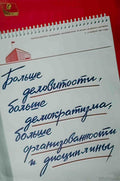 Больше
деловитости,
больше
демократизма,
больше
организованности
и дисциплины